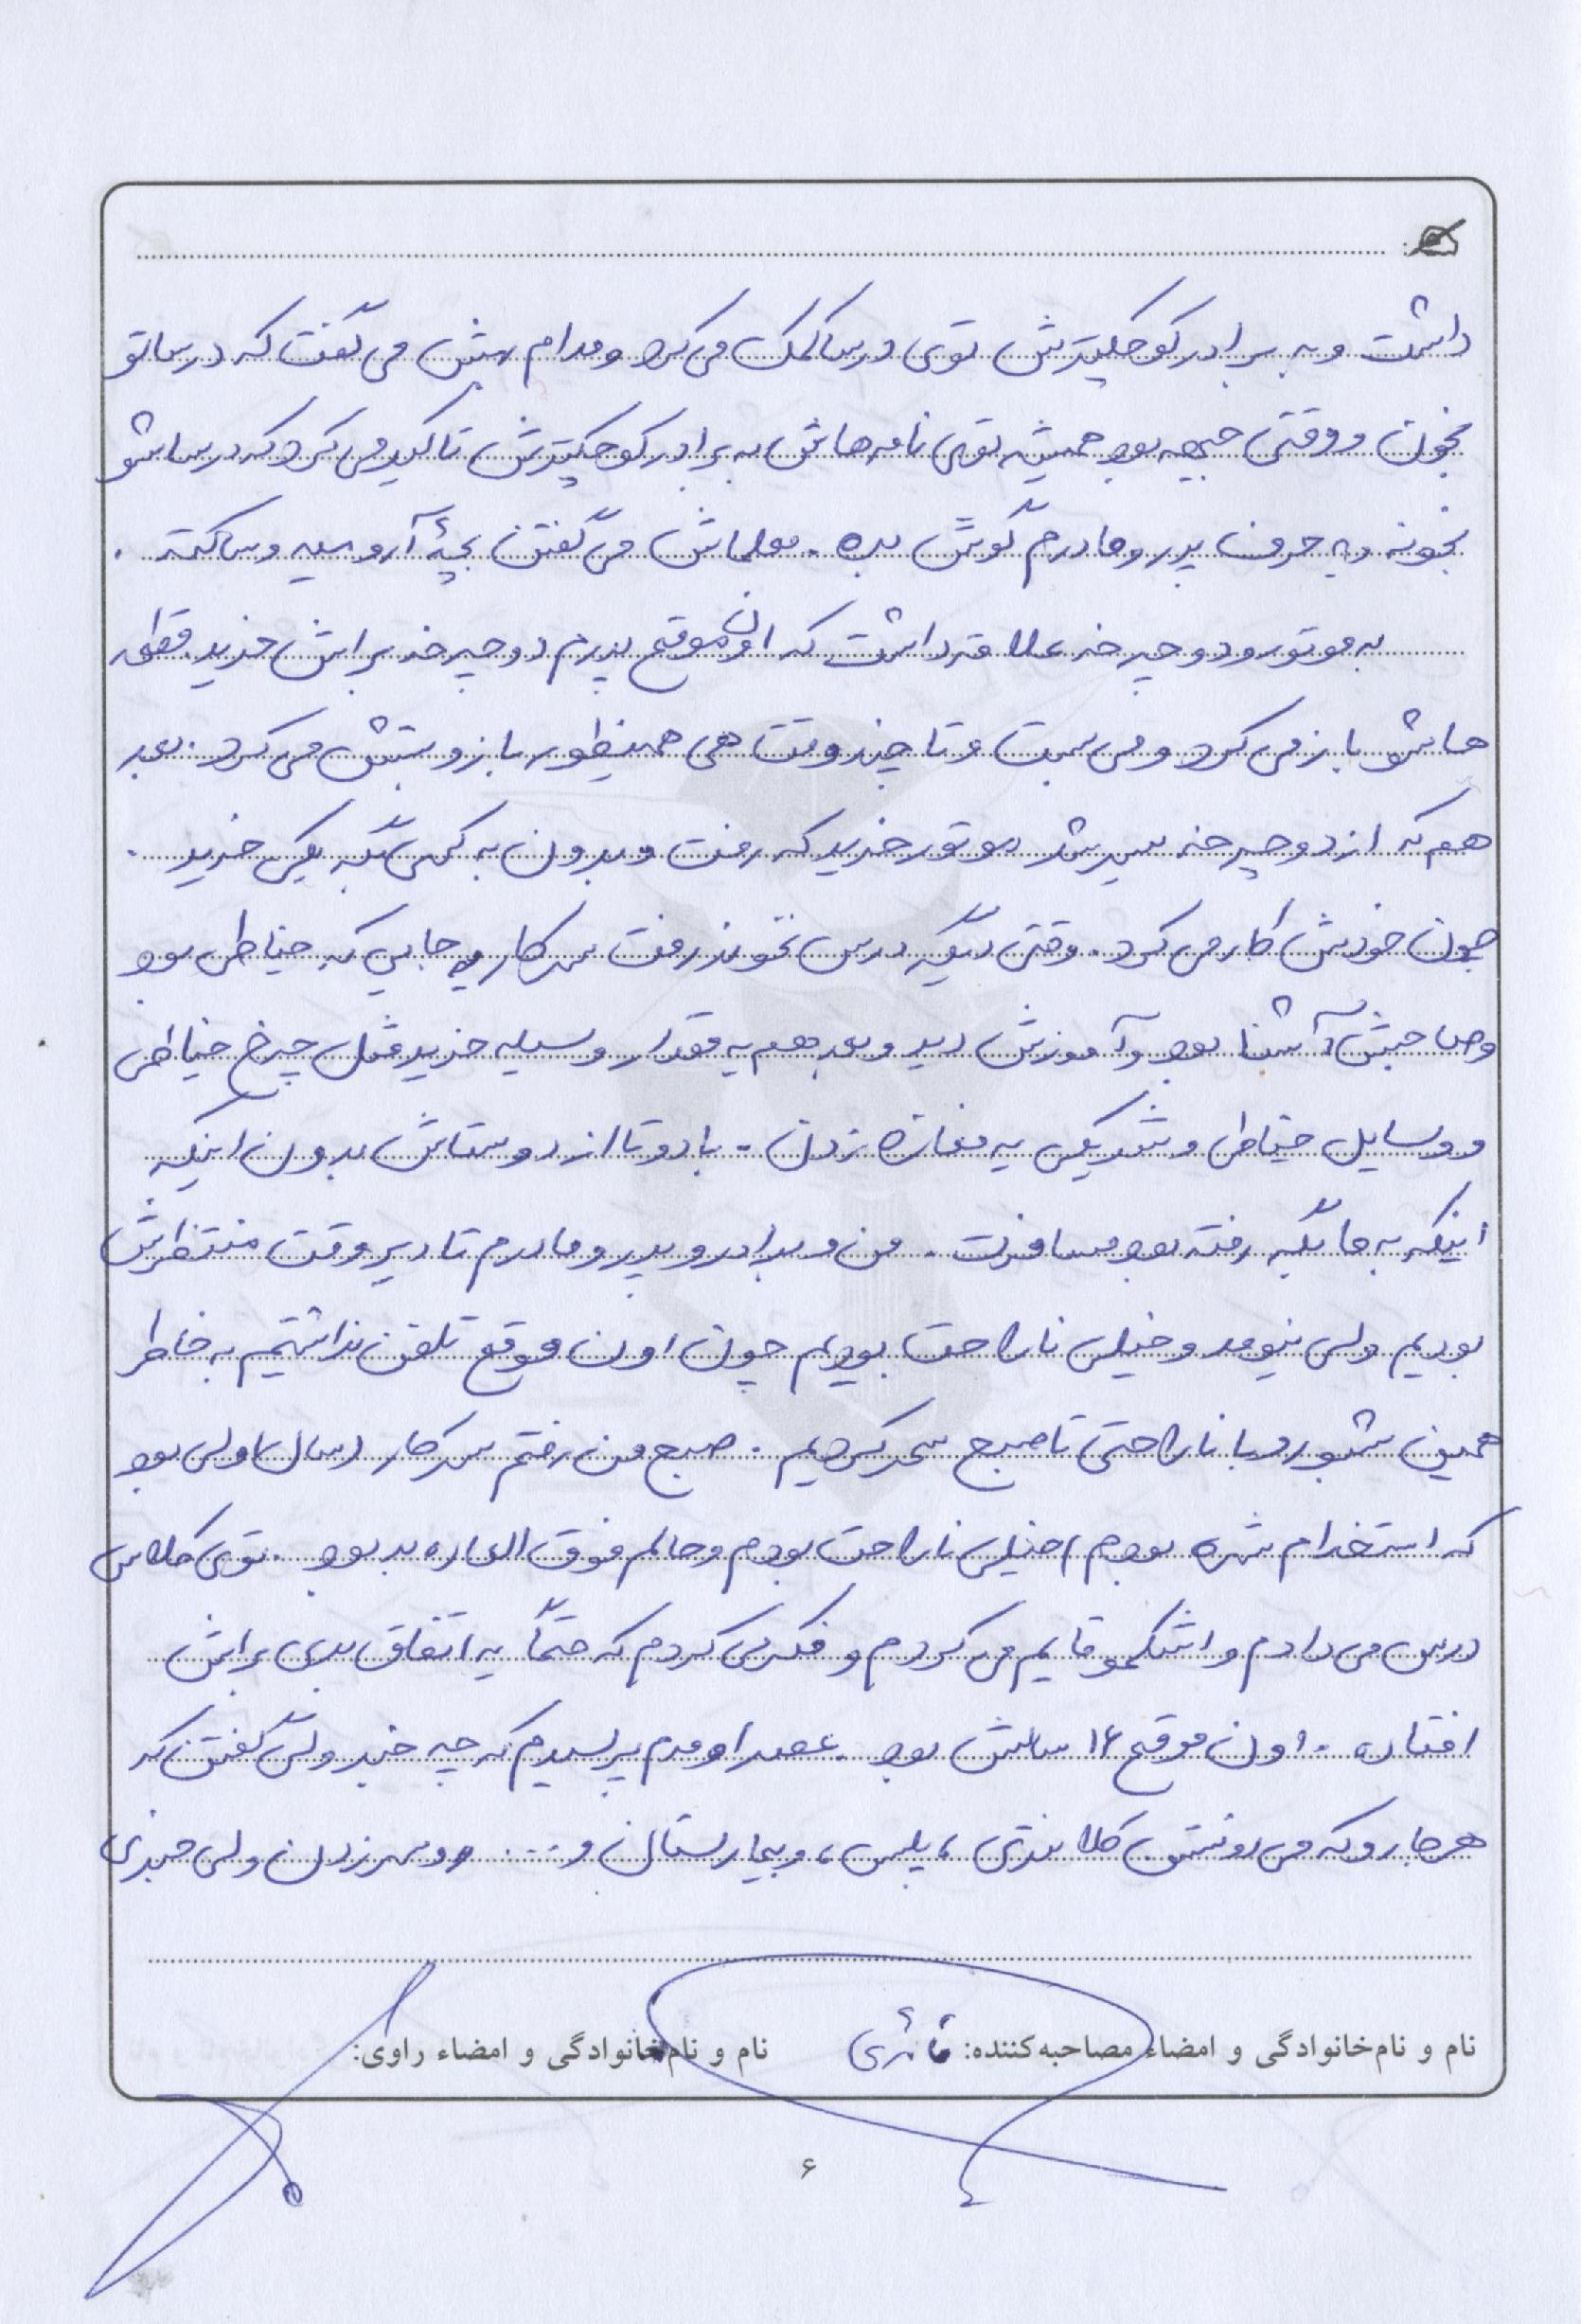 داشت و به برادر کوچکترش توی درسا کمک می‌کرد و مدام بهش می‌گفت که درساتو
بخون و وقتی جبهه بود همیشه توی نامه هاش به برادر کوچکترش تاکید می‌کرد که درساشو
بخونه و به حرف پدر و مادرم گوش بده. معلماش می‌گفتن بچه آرومیه و ساکته.
به موتور و دوچرخه علاقه داشت که اون موقع پدرم دوچرخه براش خرید. قطعه
هاشو باز می‌کرد و می‌بست و تا چند وقت هی همینطور باز و بستش می‌کرد. بعد
هم که از دوچرخه سیر شد موتور خرید که رفت و بدون به کسی بگه یکی خرید.
چون خودش کار می‌کرد. وقتی دیگه درس نخوند رفت سر کار یه جایی که خیاطی بود
و صاحبش آشنا بود و آموزش دید و بعد هم یه مقدار وسیله خرید مثل چرخ خیاطی
و وسایل خیاطی و شریکی یه مغازه زدن. با دو تا از دوستاش بدون اینکه
اینکه به ما بگه رفته بود مسافرت. من و برادر و پدر و مادرم تا دیر وقت منتظرش
بودیم ولی نیومد و خیلی ناراحت بودیم چون اون موقع تلفن نداشتیم به خاطر
همین شبو با ناراحتی تا صبح سحر کردیم. صبح من رفتم سر کار (سال اولی بود
که استخدام شده بودم) خیلی ناراحت بودم و حالم فوق العاده بد بود. توی کلاس
درس می‌دادم و اشکمو قایم می‌کردم و فکر می‌کردم که حتماً یه اتفاق بدی براش
افتاده. اون موقع ۱۶ سالش بود. عصر اومدم پرسیدم که چه خبر ولی گفتن که
هر جا رو که می‌دونستن کلانتری، پلیس، و بیمارستان و ... رو سر زدن ولی خبری
نام و نام‌خانوادگی و امضاء مصاحبه‌کننده: نام و نام‌خانوادگی و امضاء راوی:
۶